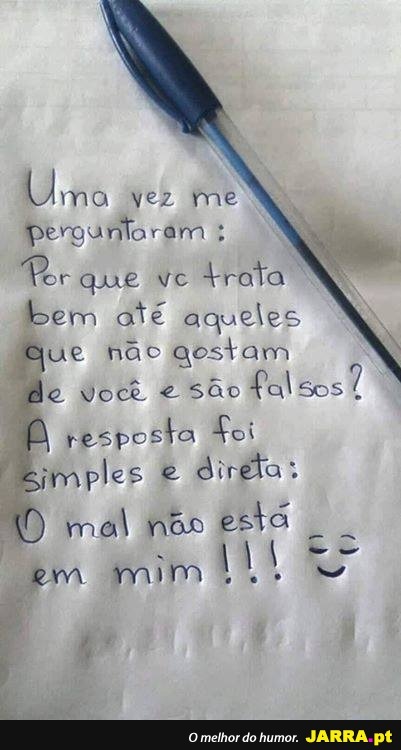 Uma vez me
perguntaram:
Por que vc trata
bem até aqueles
que não gostam
de você e são falsos?
A resposta foi
simples e direta:
O mal não está
em mim!!!
O melhor do humor. JARRA.pt